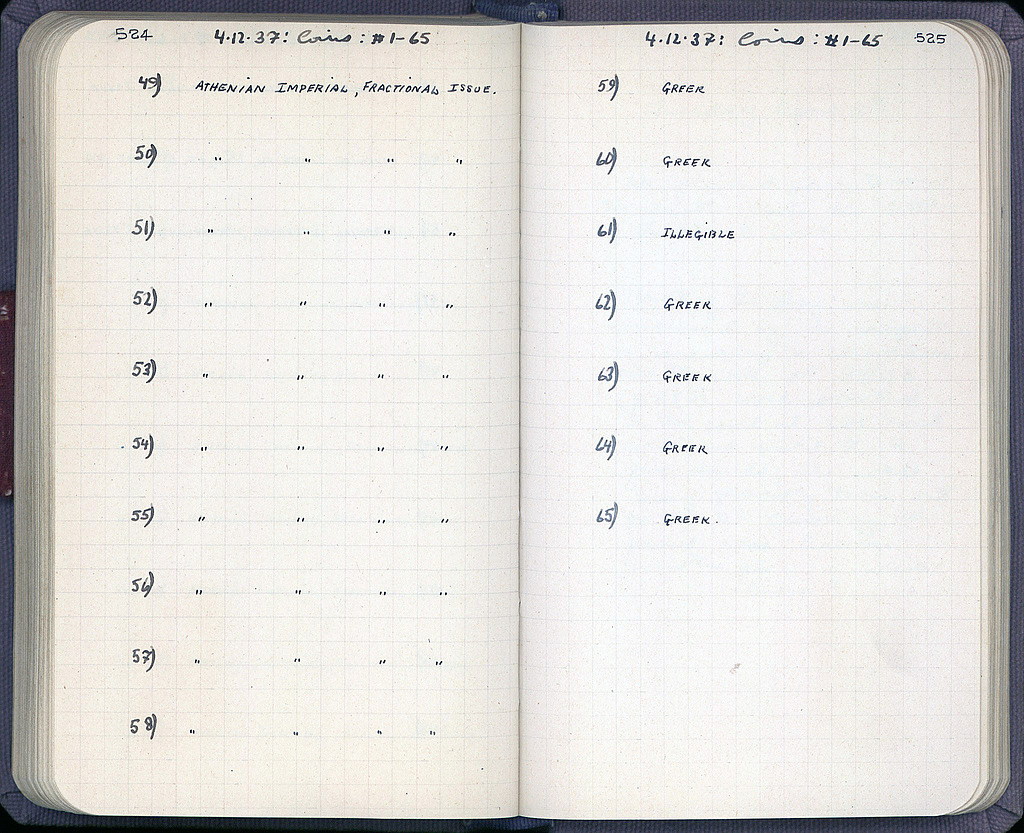 524 4.12.37: Coins: #1-65
49) ATHENIAN IMPERIAL, FRACTIONAL ISSUE.
50) " " " "
51) " " " "
52) " " " "
53) " " " "
54) " " " "
55) " " " "
56) " " " "
57) " " " "
58) " " " "
4.12.37: Coins: #1-65 525
59) GREEK
60) GREEK
61) ILLEGIBLE
62) GREEK
63) GREEK
64) GREEK
65) GREEK.